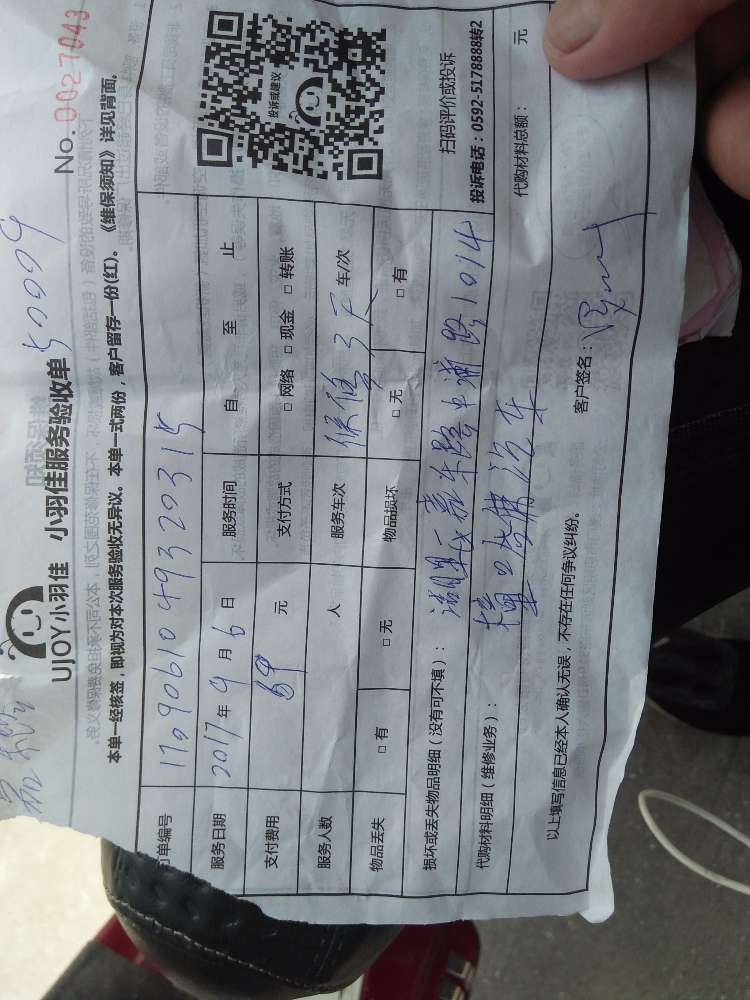 50009
UJOY小羽佳 小羽佳服务验收单
No. 0027043
本单一经核签，即视为对本次服务验收无异议。本单一式两份，客户留存一份(红)。《维保须知》详见背面。
单编号 17090610493 20315
服务日期 2017年9月6日 服务时间 自 至 止
支付费用 69 元 支付方式 □网络 □现金 □转账
服务人数 人 服务车次 保修3天 车/次
物品丢失 □有 □无 物品损坏 □无 □有
投诉或建议
扫码评价或投诉
投诉电话：0592-5178888转2
损坏或丢失物品明细（没有可不填）： 湖里区嘉禾路 1014
代购材料明细（维修业务）： 汽车
代购材料总额： 元
以上填写信息已经本人确认无误，不存在任何争议纠纷。
客户签名：